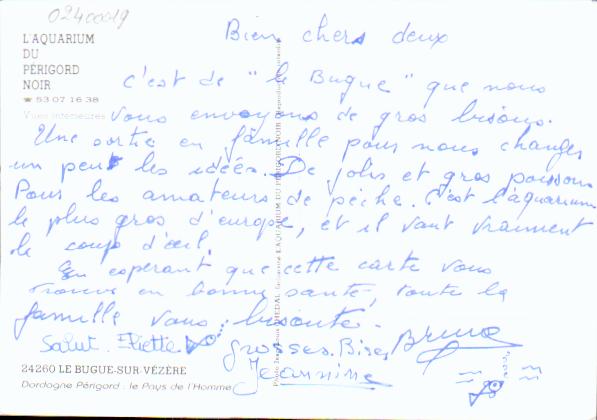 02400019
L'AQUARIUM
DU
PÉRIGORD
NOIR
☎ 53 07 16 38
Vues intérieures
Bien chers deux
c'est de "le Bugue" que nous
vous envoyons de gros bisous.
Une sortie en famille pour nous changer
un peu les idées. De jolis et gros poissons
Pour les amateurs de pêche. C'est l'aquarium
le plus gros d'europe, et il vaut vraiment
le coup d'œil.
En esperant que cette carte vous
trouve en bonne santé, toute la
famille vous bisoute.
Salut
Grosses Bises
Bruno
Jeannine
24260 LE BUGUE-SUR-VÉZÈRE
Dordogne Périgord : le Pays de l'Homme
L'AQUARIUM DU PÉRIGORD NOIR